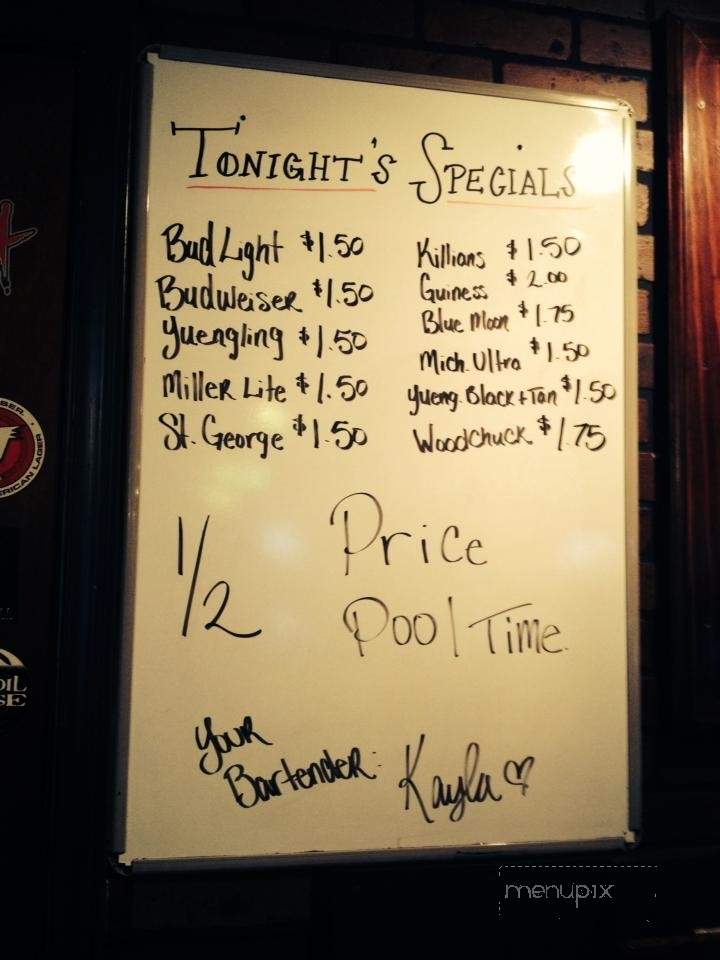 Tonight's Specials
Bud Light $1.50
Budweiser $1.50
Yuengling $1.50
Miller Lite $1.50
St. George $1.50
Killians $1.50
Guiness $2.00
Blue Moon $1.75
Mich. Ultra $1.50
Yueng. Black + Tan $1.50
Woodchuck $1.75
1/2 Price
Pool Time.
Your
Bartender: Kayla ♡
menupix